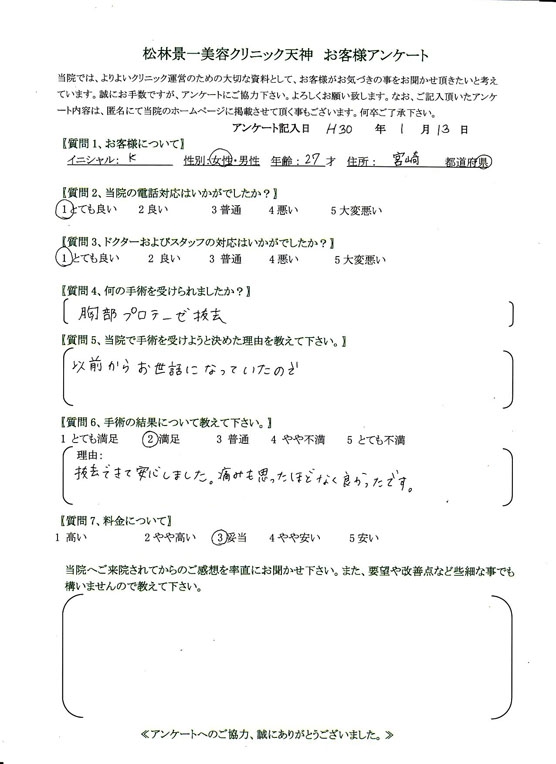 松林景一美容クリニック天神　お客様アンケート
当院では、よりよいクリニック運営のための大切な資料として、お客様がお気づきの事をお聞かせ頂きたいと考え
ています。誠にお手数ですが、アンケートにご協力下さい。よろしくお願い致します。なお、ご記入頂いたアンケ
ート内容は、匿名にて当院のホームページに掲載させて頂く事もございます。何卒ご了承下さい。
アンケート記入日　H30　年　1　月　13　日
〖質問1、お客様について〗
イニシャル：　K　性別：女性・男性　年齢：27　才　住所：　宮崎　都道府県
〖質問2、当院の電話対応はいかがでしたか？〗
1とても良い　2良い　3普通　4悪い　5大変悪い
〖質問3、ドクターおよびスタッフの対応はいかがでしたか？〗
1とても良い　2 良い　3 普通　4悪い　5大変悪い
〖質問4、何の手術を受けられましたか？〗
胸部プロテーゼ抜去
〖質問5、当院で手術を受けようと決めた理由を教えて下さい。〗
以前からお世話になっていたので
〖質問6、手術の結果について教えて下さい。〗
1 とても満足　2満足　3 普通　4 やや不満　5 とても不満
理由：
抜去できて安心しました。痛みも思ったほどなく良かったです。
〖質問7、料金について〗
1 高い　2やや高い　3妥当　4やや安い　5安い
当院へご来院されてからのご感想を率直にお聞かせ下さい。また、要望や改善点など些細な事でも
構いませんので教えて下さい。
≪アンケートへのご協力、誠にありがとうございました。≫